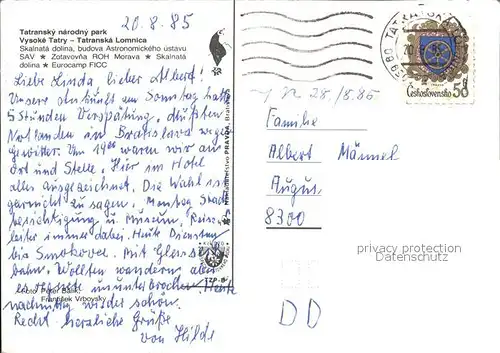 20.8.85
Tatranský národný park
Vysoké Tatry – Tatranská Lomnica
Skalnatá dolina, budova Astronomického ústavu
SAV ★ Zotavovňa ROH Morava ★ Skalnatá
dolina ★ Eurocamp FICC
Liebe Linda lieber Albert!
Unsere Ankunft am Sonntag hatte
5 Stunden Verspätung, mußten
Notlanden in Bratislava wegen
Gewitter. Um 19⁰⁰ waren wir an
Ort und Stelle. Hier im Hotel
alles ausgezeichnet. Die Wahl ist
garnicht zu sagen. Montag Stadt
besichtigung u. Museum, Reise
leiter immer dabei. Heute Dienstag
bis Smokovec. Mit
bahn. Wollten wandern aber
es regnete ununterbrochen. Heute
nachmittag wieder schön.
Recht herzliche Grüße
von Hilde
Foto Peter Balik,
František Vrbovský
Nakladateľstvo PRAVDA, Bratislava
TATRANSKÁ
20
Československo
50
28./8.85
Familie
Albert Männel
August
8300
privacy protection
Datenschutz
DD